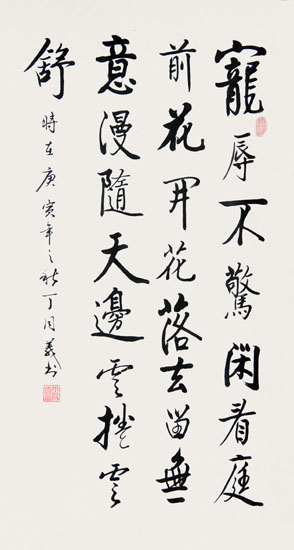 寵辱不驚閑看庭
前花開花落去留無
意漫隨天邊雲捲雲
舒
時在庚寅年之秋丁同義書